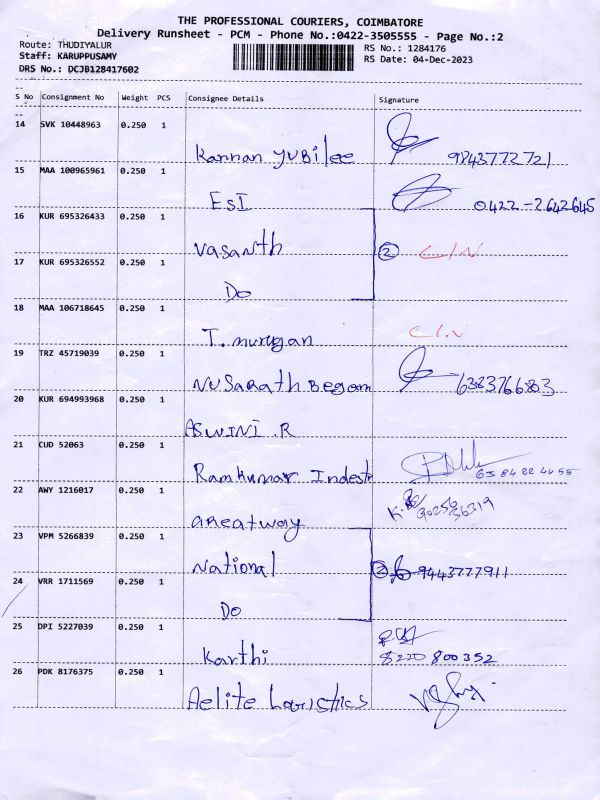 THE PROFESSIONAL COURIERS, COIMBATORE
Delivery Runsheet - PCM - Phone No.:0422-3505555 - Page No.:2
Route: THUDIYALUR RS No.: 1284176
Staff: KARUPPUSAMY RS Date: 04-Dec-2023
DRS No.: DCJB128417602
S No Consignment No Weight PCS Consignee Details Signature
14 SVK 10448963 0.250 1
Kannan YUBilee 9843772721
15 MAA 100965961 0.250 1
ESI 0422-2642645
16 KUR 695326433 0.250 1
Vasanth 2 C/N
17 KUR 695326552 0.250 1
Do
18 MAA 106718645 0.250 1
T. murugan C/N
19 TRZ 45719039 0.250 1
NUSARATH BEGAM 6383766683
20 KUR 694993968 0.250 1
ASWINI .R
21 CUD 52063 0.250 1
Ramkumar Indest 6384224455
22 AWY 1216017 0.250 1
Greatway 90256 36319
23 VPM 5266839 0.250 1
National 2 9443777911
24 VRR 1711569 0.250 1
Do
25 DPI 5227039 0.250 1
Karthi 8220800352
26 PDK 8176375 0.250 1
Aelite Logistics